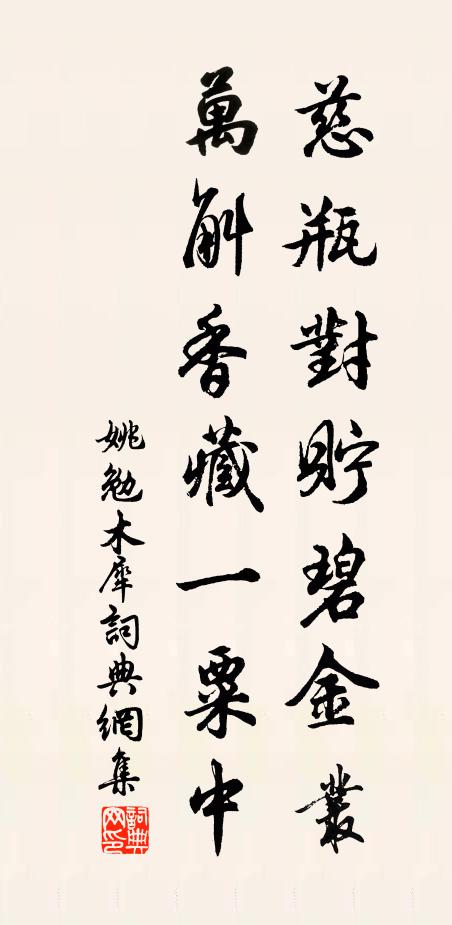 慈瓶對貯碧金叢
萬斛香藏一粟中
姚勉木犀詞典網集
詞典网印